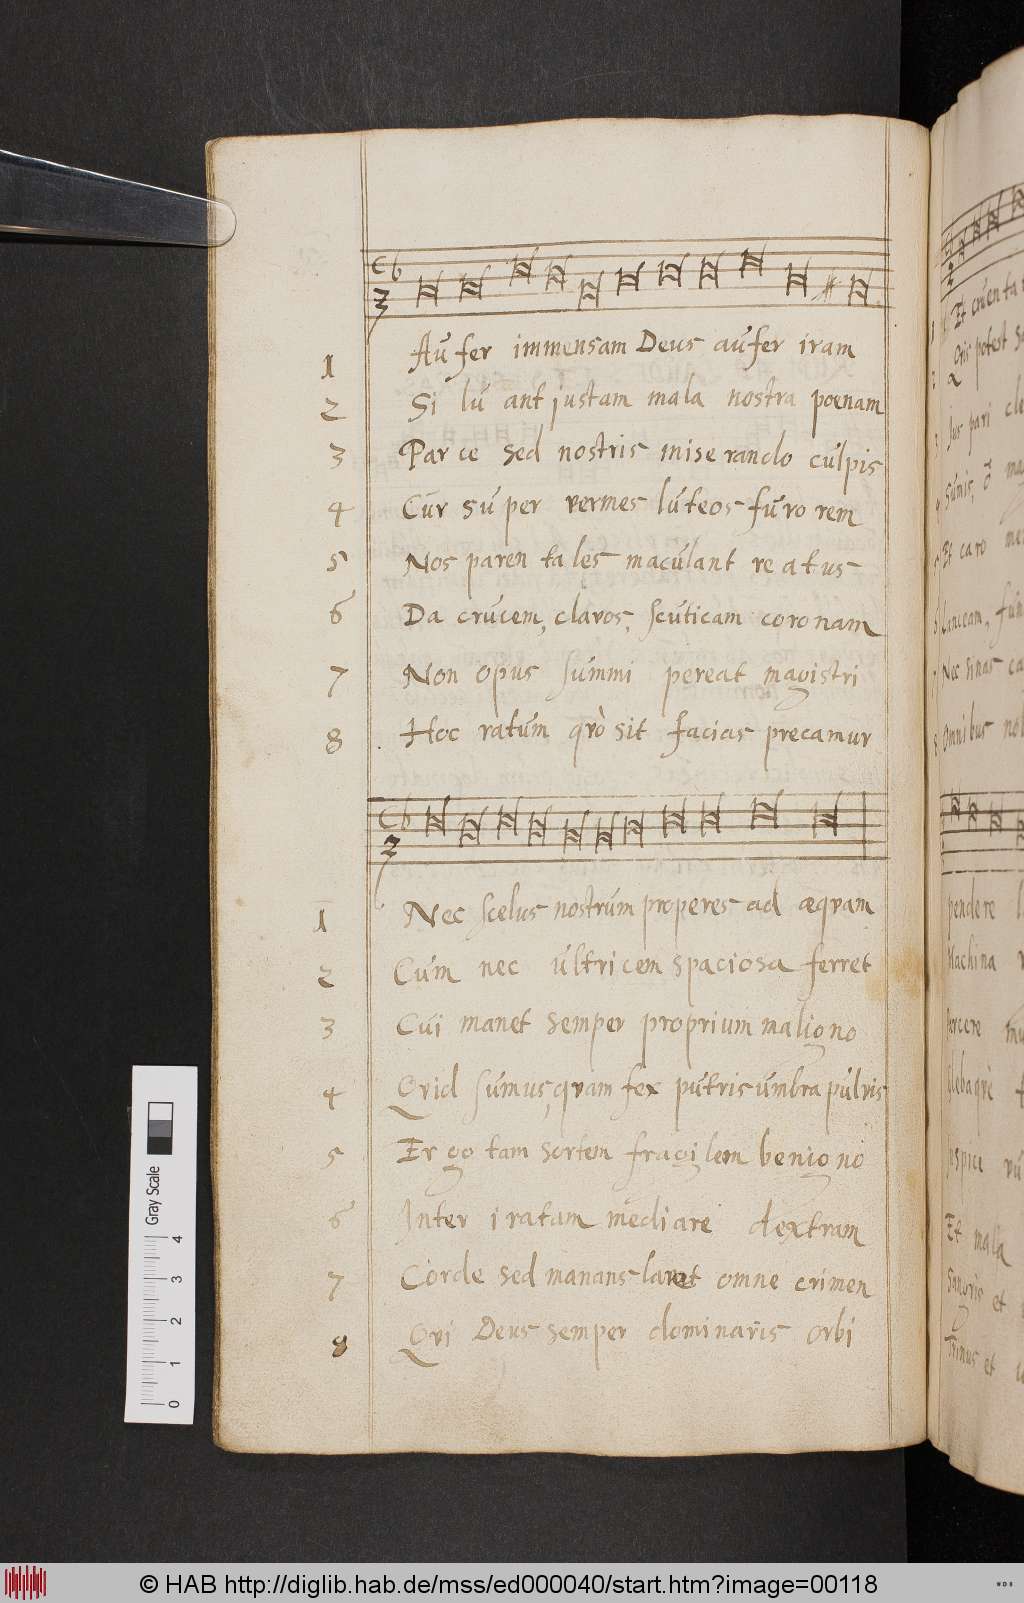 1 Aufer immensam Deus aufer iram
2 Si lu ant justam mala nostra poenam
3 Par ce sed nostris mise rando culpis
4 Cur su per vermes luteos furo rem
5 Nos paren ta les maculant re a tus
6 Da crucem, clavos, scuticam coronam
7 Non opus summi pereat magistri
8 Hoc ratum qrò sit facias precamur
1 Nec scelus nostrum properes ad æqvam
2 Cum nec ultricem spaciosa ferret
3 Cui manet semper proprium maligno
4 Qvid sumus, qvam fex putris umbra pulvis
5 Er go tam sortem fragi lem benigno
6 Inter i ratam mediare dextram
7 Corde sed manans lavet omne crimen
8 Qvi Deus semper dominaris orbi
Et cruenta
Qvis potest
Jus pari
Sumis, ô
Et caro
Lanceam,
Nec sinas
Omnibus
pendere
Machina
Parcere
Glebaqve
Inspice
Et mala
Sangvis et
Trinus et
Gray Scale
0 1 2 3 4
© HAB http://diglib.hab.de/mss/ed000040/start.htm?image=00118